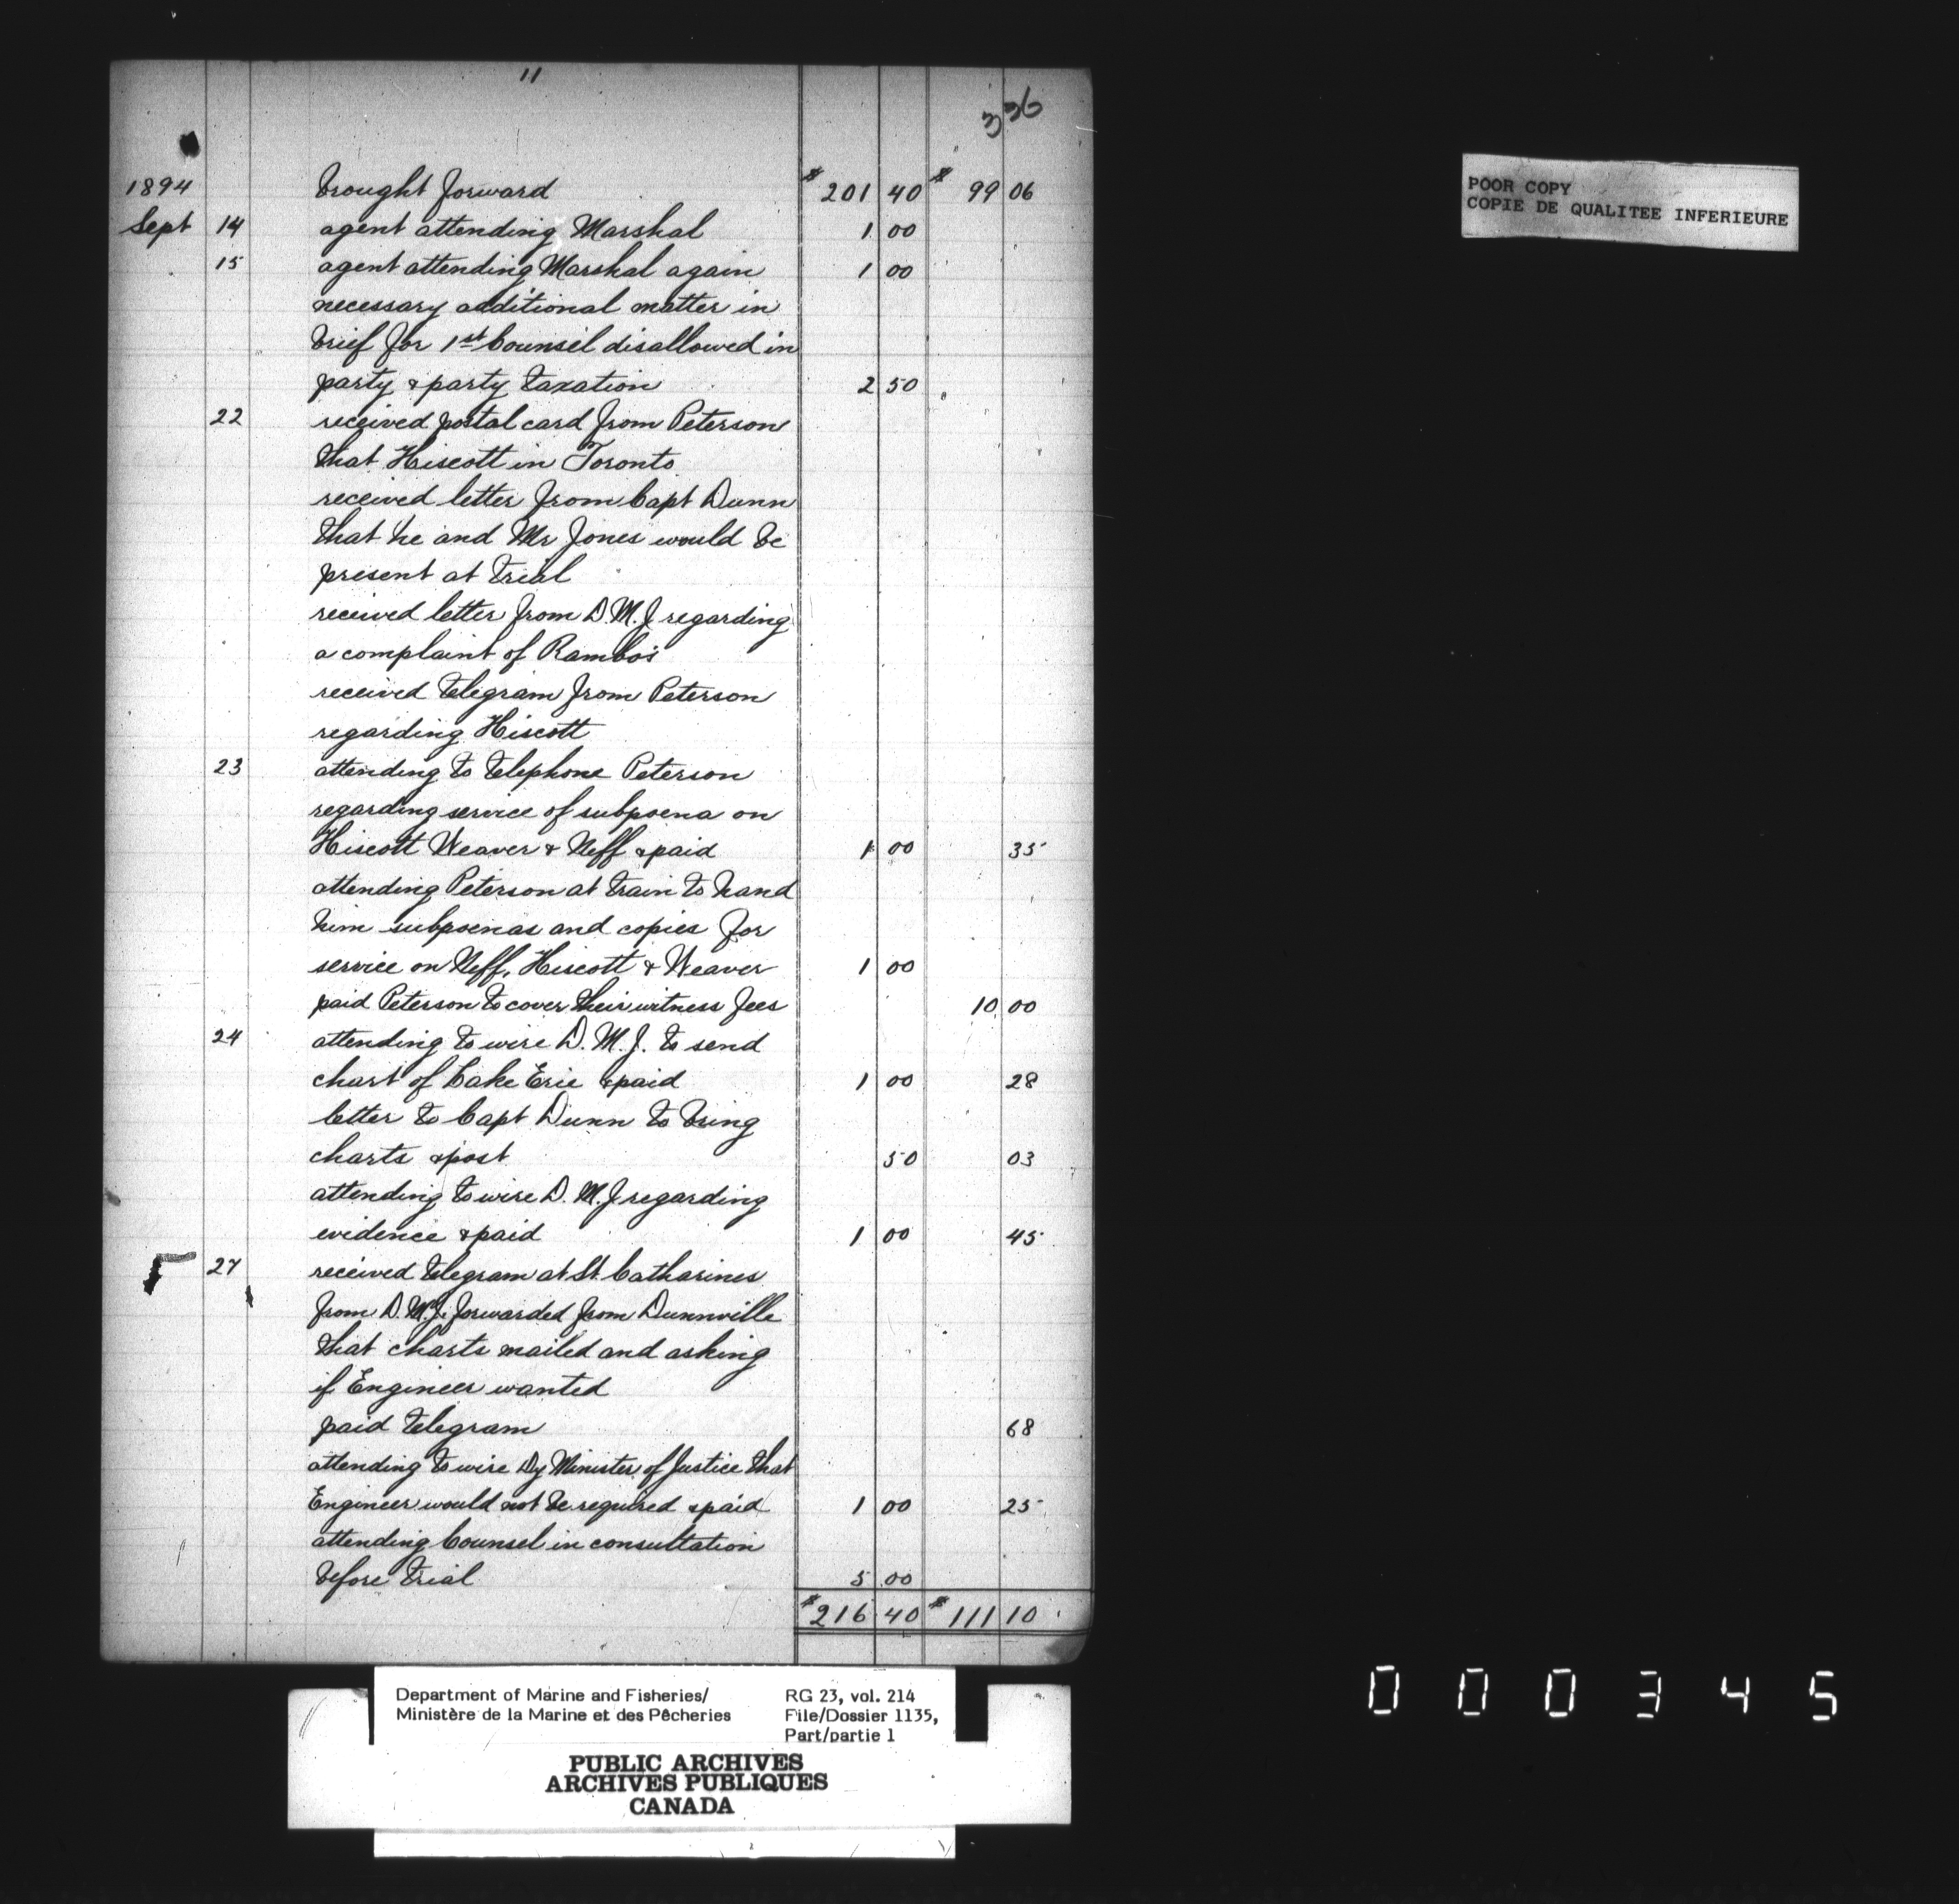 11
336
1894 brought forward $201 40 $99 06
Sept 14 agent attending Marshal 1 00
15 agent attending Marshal again 1 00
necessary additional matter in
brief for 1st Counsel disallowed in
party & party taxation 2 50
22 received postal card from Peterson
that Hiscott in Toronto
received letter from Capt Dunn
that he and Mr Jones would be
present at trial
received letter from D.M.J regarding
a complaint of Rambo's
received telegram from Peterson
regarding Hiscott
23 attending to telephone Peterson
regarding service of subpoena on
Hiscott Weaver & Neff & paid 1 00 35
attending Peterson at train to hand
him subpoenas and copies for
service on Neff, Hiscott & Weaver 1 00
paid Peterson to cover their witness fees 10 00
24 attending to wire D.M.J. to send
chart of Lake Erie & paid 1 00 28
letter to Capt Dunn to bring
charts & post 50 03
attending to wire D.M.J regarding
evidence & paid 1 00 45
27 received telegram at St. Catharines
from D.M.J. forwarded from Dunnville
that charts mailed and asking
if Engineer wanted
paid telegram 68
attending to wire Dy Minister of Justice that
Engineer would not be required & paid 1 00 25
attending Counsel in consultation
before trial 5 00
$216 40 $111 10
POOR COPY
COPIE DE QUALITEE INFERIEURE
Department of Marine and Fisheries/
Ministère de la Marine et des Pêcheries
RG 23, vol. 214
File/Dossier 1135,
Part/partie 1
PUBLIC ARCHIVES
ARCHIVES PUBLIQUES
CANADA
000345